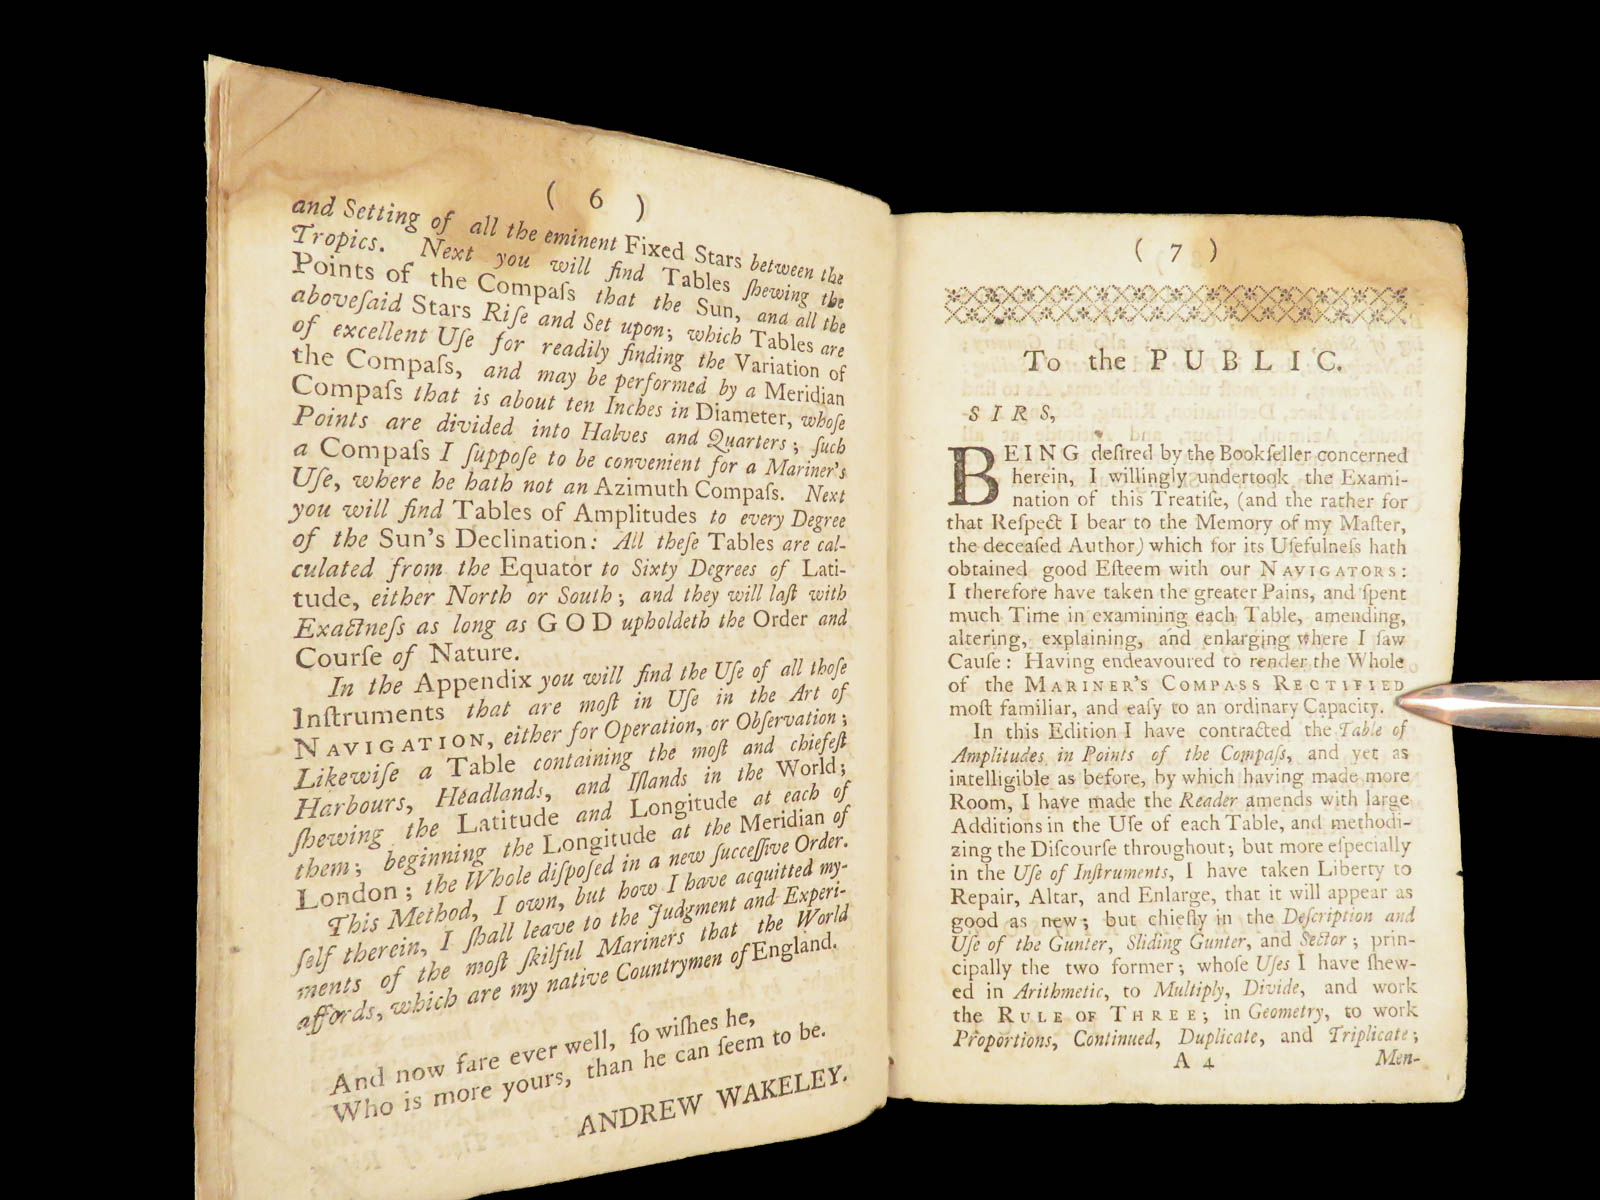 ( 6 )
and Setting of all the eminent Fixed Stars between the
Tropics. Next you will find Tables ſhewing the
Points of the Compaſs that the Sun, and all the
aboveſaid Stars Riſe and Set upon; which Tables are
of excellent Uſe for readily finding the Variation of
the Compaſs, and may be performed by a Meridian
Compaſs that is about ten Inches in Diameter, whoſe
Points are divided into Halves and Quarters; ſuch
a Compaſs I ſuppoſe to be convenient for a Mariner's
Uſe, where he hath not an Azimuth Compaſs. Next
you will find Tables of Amplitudes to every Degree
of the Sun's Declination: All theſe Tables are cal-
culated from the Equator to Sixty Degrees of Lati-
tude, either North or South; and they will laſt with
Exactneſs as long as GOD upholdeth the Order and
Courſe of Nature.
In the Appendix you will find the Uſe of all thoſe
Inſtruments that are moſt in Uſe in the Art of
NAVIGATION, either for Operation, or Obſervation;
Likewiſe a Table containing the moſt and chiefeſt
Harbours, Headlands, and Iſlands in the World;
ſhewing the Latitude and Longitude at each of
them; beginning the Longitude at the Meridian of
London; the Whole diſpoſed in a new ſucceſſive Order.
This Method, I own, but how I have acquitted my-
ſelf therein, I ſhall leave to the Judgment and Experi-
ments of the moſt ſkilful Mariners that the World
affords, which are my native Countrymen of England.
And now fare ever well, ſo wiſhes he,
Who is more yours, than he can ſeem to be.
ANDREW WAKELEY.
( 7 )
To the PUBLIC.
SIRS,
BEING deſired by the Bookſeller concerned
herein, I willingly undertook the Exami-
nation of this Treatiſe, (and the rather for
that Reſpect I bear to the Memory of my Maſter,
the deceaſed Author) which for its Uſefulneſs hath
obtained good Eſteem with our NAVIGATORS:
I therefore have taken the greater Pains, and ſpent
much Time in examining each Table, amending,
altering, explaining, and enlarging where I ſaw
Cauſe: Having endeavoured to render the Whole
of the MARINER'S COMPASS RECTIFIED
moſt familiar, and eaſy to an ordinary Capacity.
In this Edition I have contracted the Table of
Amplitudes in Points of the Compaſs, and yet as
intelligible as before, by which having made more
Room, I have made the Reader amends with large
Additions in the Uſe of each Table, and methodi-
zing the Diſcourſe throughout; but more eſpecially
in the Uſe of Inſtruments, I have taken Liberty to
Repair, Altar, and Enlarge, that it will appear as
good as new; but chiefly in the Deſcription and
Uſe of the Gunter, Sliding Gunter, and Sector; prin-
cipally the two former; whoſe Uſes I have ſhew-
ed in Arithmetic, to Multiply, Divide, and work
the RULE OF THREE; in Geometry, to work
Proportions, Continued, Duplicate, and Triplicate;
A 4 Men-